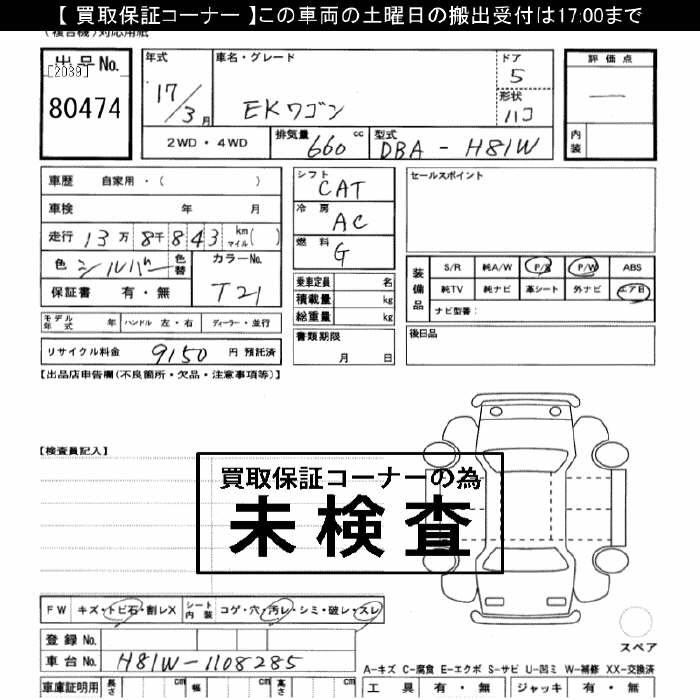 【 買取保証コーナー 】この車両の土曜日の搬出受付は17:00まで
(複合機)対応用紙
出品No.
[2039]
80474
年式
17/3月
車名・グレード
EKワゴン
ドア
5
形状
ハコ
評価点
—
内装
2WD・4WD
排気量 660 cc
型式 DBA-H81W
車歴 自家用・( )
車検 年 月
走行 13万8千843 km マイル( )
色 シルバー 色替
カラーNo. T21
保証書 有・無
モデル年式 年 ハンドル 左・右 ディーラー・並行
リサイクル料金 9150 円 預託済
シフト CAT
冷房 AC
燃料 G
乗車定員 名
積載量 kg
総重量 kg
書類期限
月 日
セールスポイント
装備品
S/R 純A/W P/S P/W ABS
純TV 純ナビ 革シート 外ナビ エアB
ナビ型番:
後日品
【出品店申告欄(不良箇所・欠品・注意事項等)】
【検査員記入】
買取保証コーナーの為
未検査
FW キズ・トビ石・割レX シート内装 コゲ・穴・汚レ・シミ・破レ・スレ
登録No.
車台No. H81W-1108285
車庫証明用 長さ cm 幅 cm 高さ cm
スペア
A-キズ C-腐食 E-エクボ S-サビ U-凹ミ W-補修 XX-交換済
工具 有・無 ジャッキ 有・無